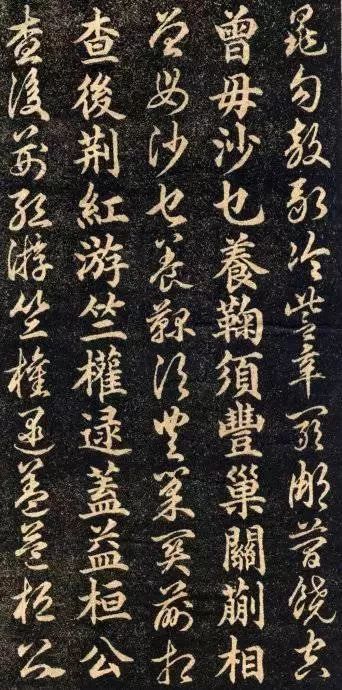 晁勾敖融冷訾辛闞那簡饒空
曾毋沙乜養鞠須豐巢關蒯相
曾毋沙乜養鞠須豐巢關蒯相
查後荊紅游竺權逯蓋益桓公
查後荊紅游竺權逯蓋益桓公